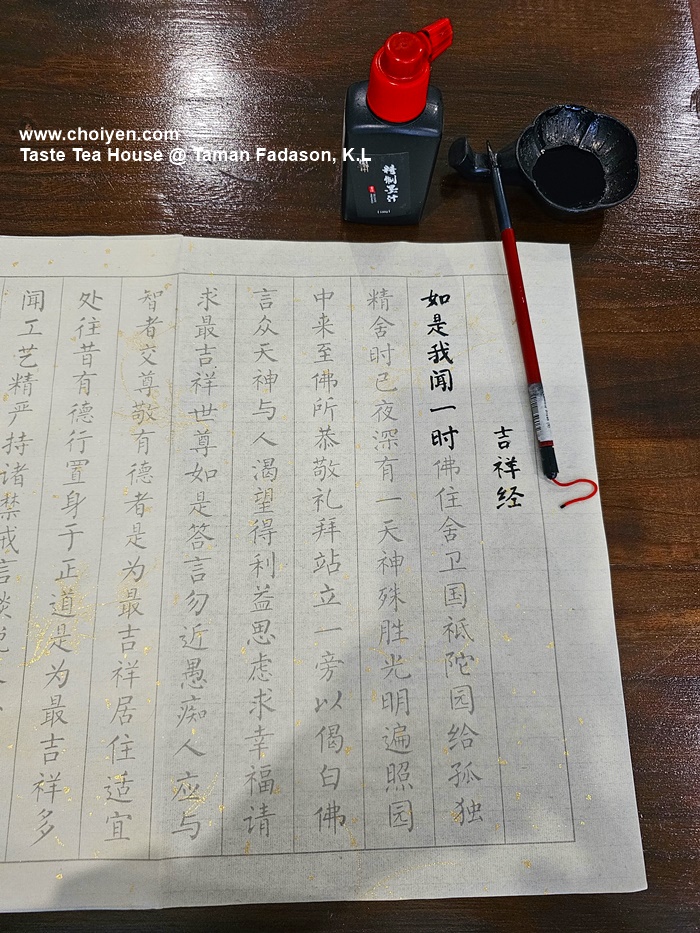 www.choiyen.com
Taste Tea House @ Taman Fadason, K.L
精制墨汁
吉祥经
如是我闻一时佛住舍卫国祇陀园给孤独
精舍时已夜深有一天神殊胜光明遍照园
中来至佛所恭敬礼拜站立一旁以偈白佛
言众天神与人渴望得利益思虑求幸福请
求最吉祥世尊如是答言勿近愚痴人应与
智者交尊敬有德者是为最吉祥居住适宜
处往昔有德行置身于正道是为最吉祥多
闻工艺精严持诸禁戒言谈悦人